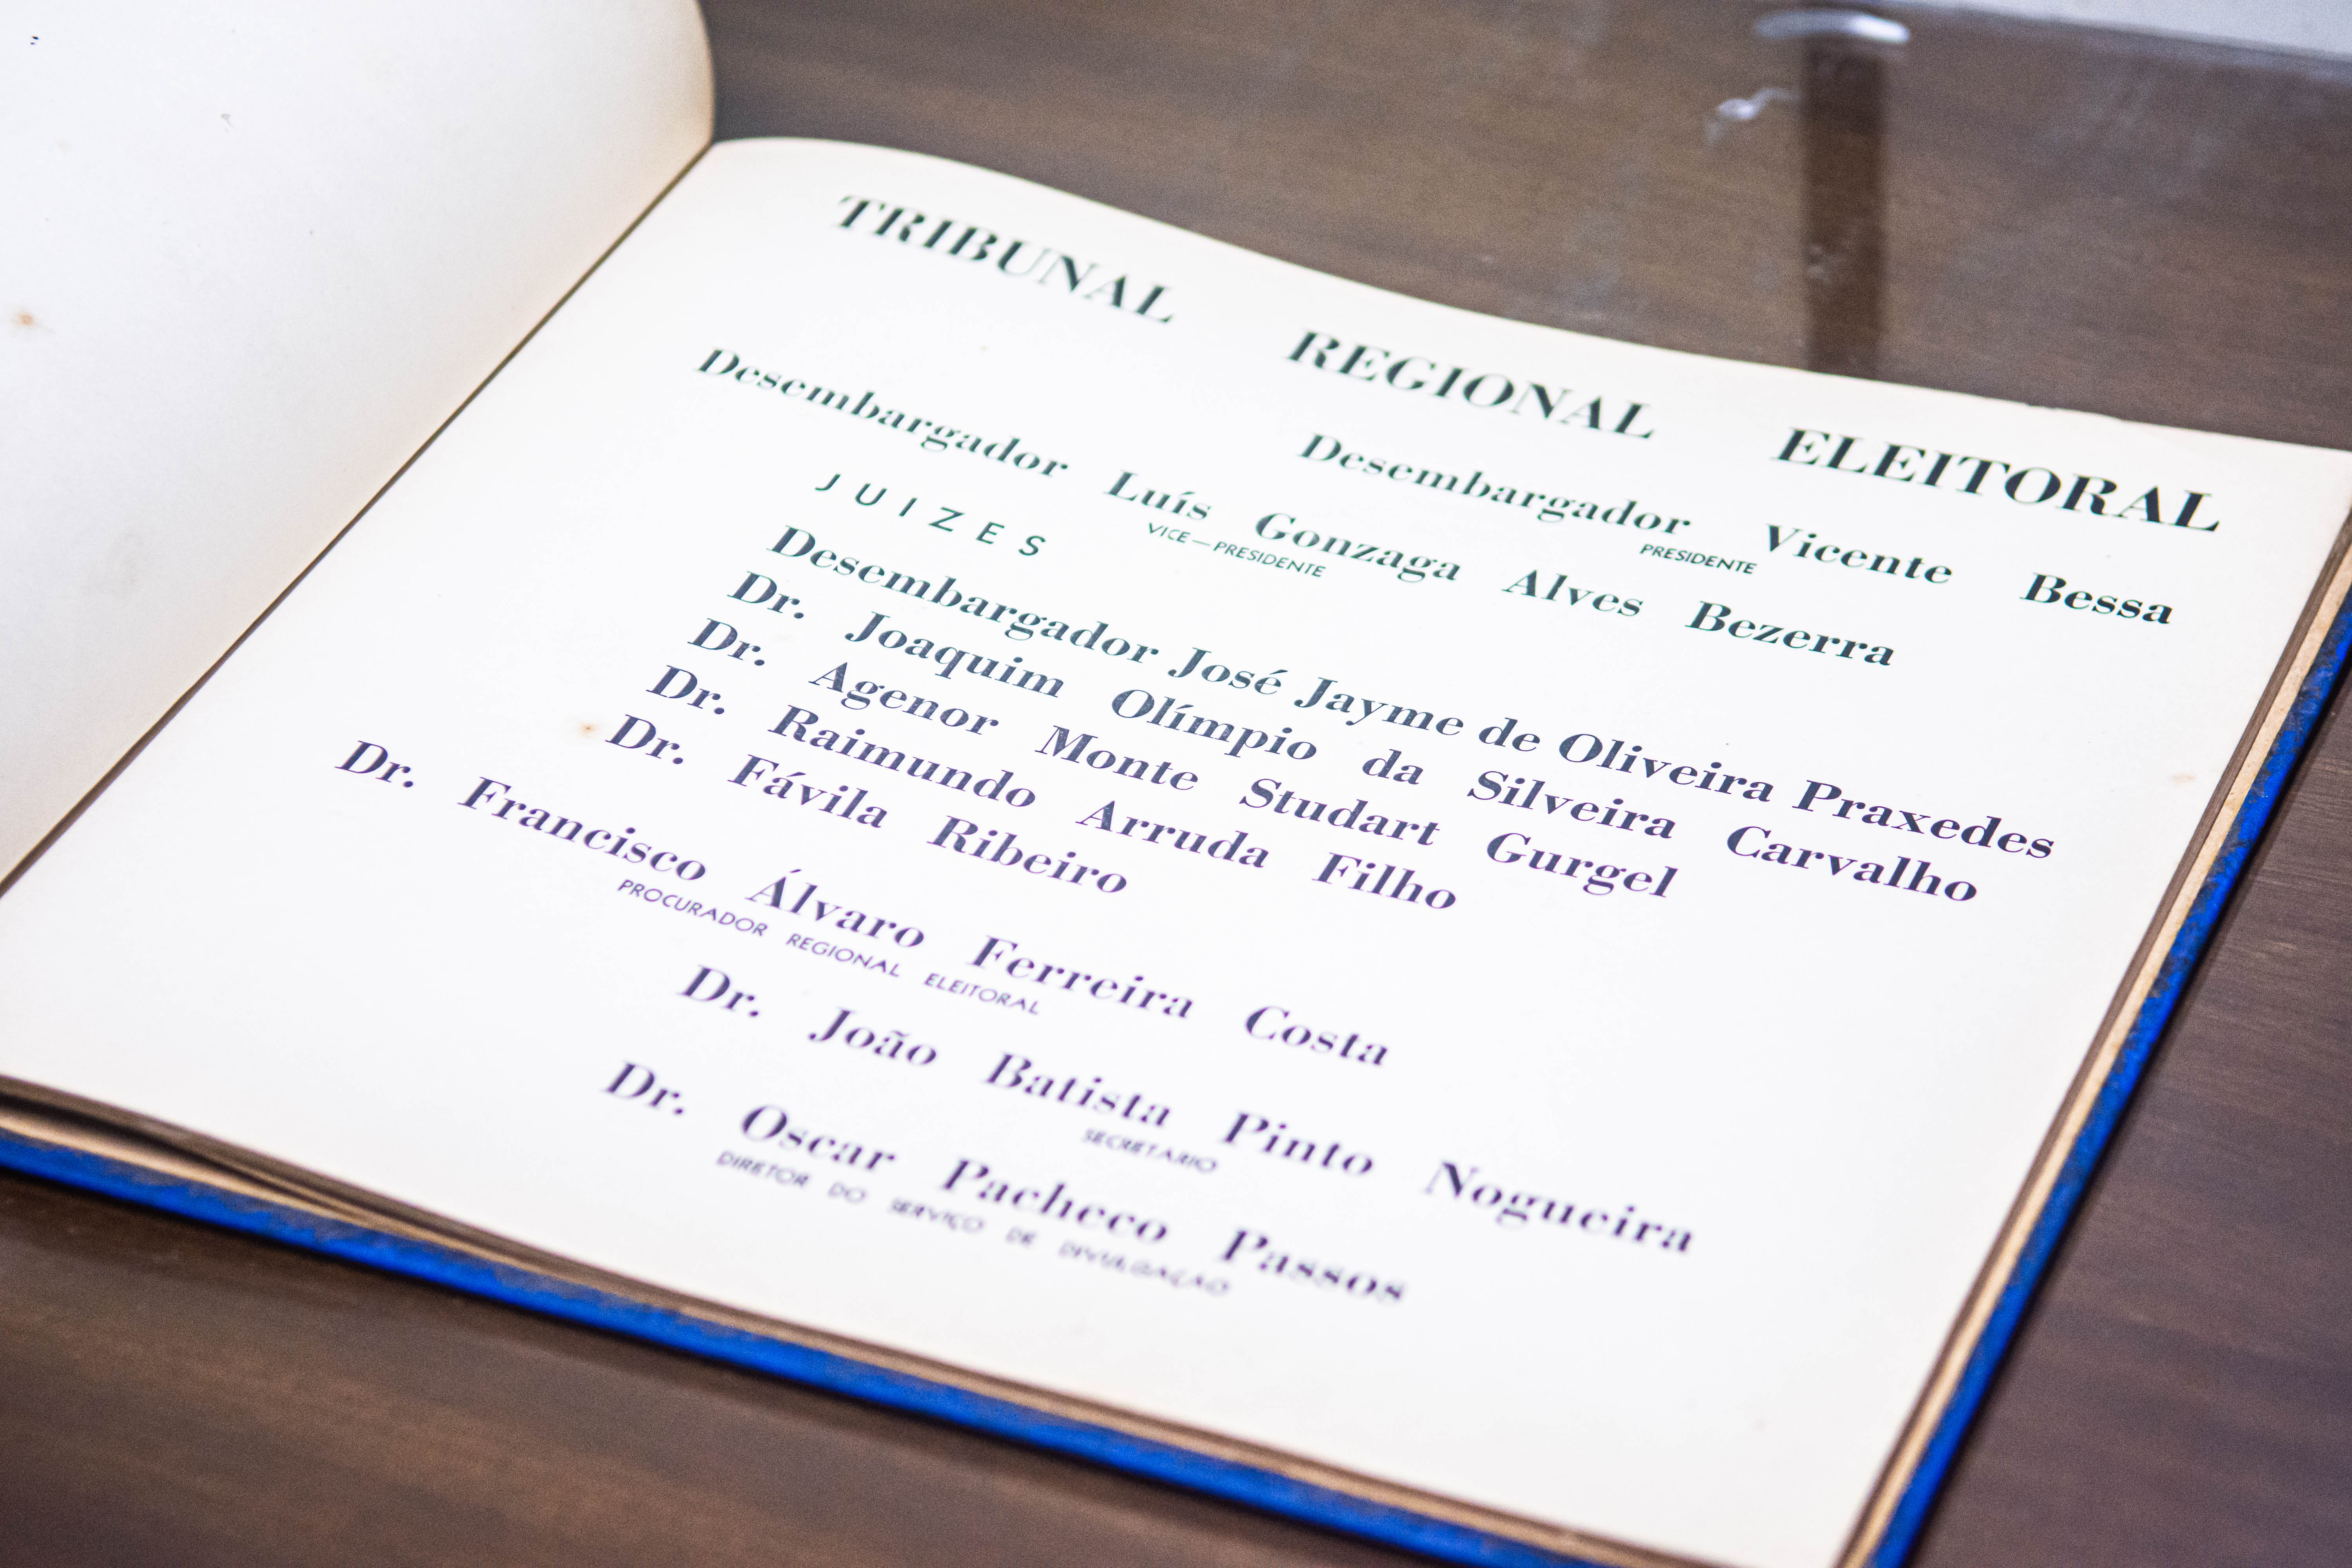 TRIBUNAL REGIONAL ELEITORAL
Desembargador Vicente Bessa
PRESIDENTE
Desembargador Luís Gonzaga Alves Bezerra
VICE-PRESIDENTE
JUIZES
Desembargador José Jayme de Oliveira Praxedes
Dr. Joaquim Olímpio da Silveira Carvalho
Dr. Agenor Monte Studart Gurgel
Dr. Raimundo Arruda Filho
Dr. Fávila Ribeiro
Dr. Francisco Álvaro Ferreira Costa
PROCURADOR REGIONAL ELEITORAL
Dr. João Batista Pinto Nogueira
SECRETARIO
Dr. Oscar Pacheco Passos
DIRETOR DO SERVIÇO DE DIVULGAÇÃO